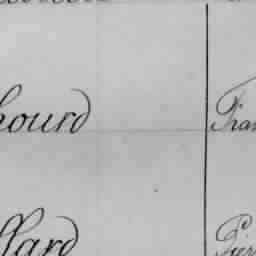 hourd Fran
llard Pier